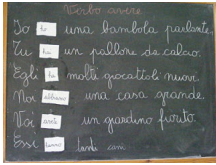 Verbo avere
Io ho una bambola parlante,
Tu hai un pallone da calcio.
Egli ha molti giocattoli nuovi.
Noi abbiamo una casa grande.
Voi avete un giardino fiorito.
Essi hanno tanti cani